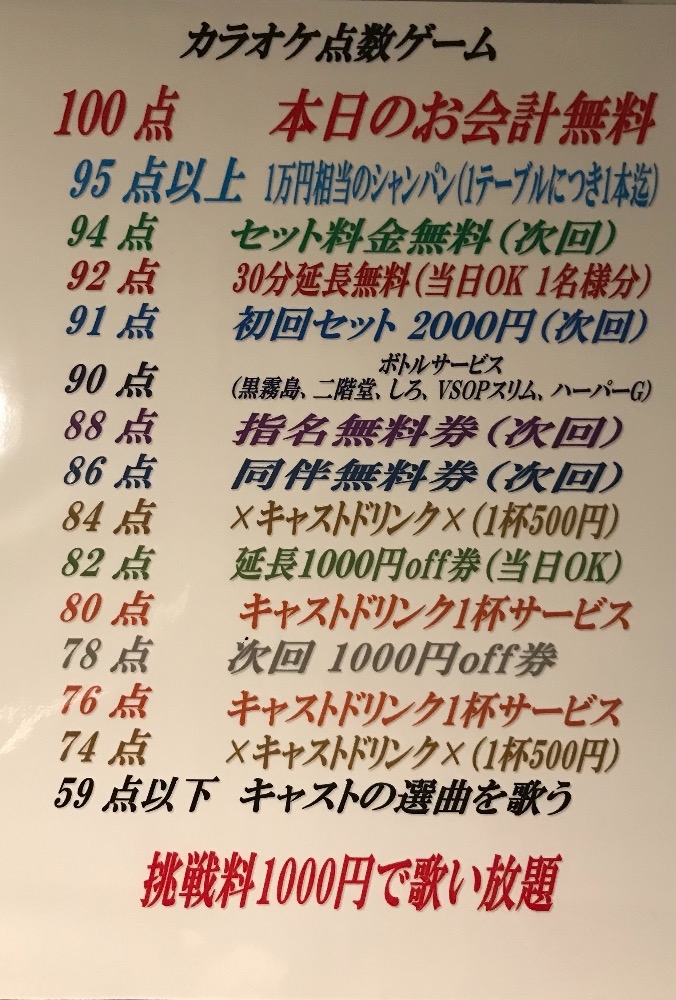 カラオケ点数ゲーム
100 点 本日のお会計無料
95 点以上 1万円相当のシャンパン(1テーブルにつき1本迄)
94 点 セット料金無料(次回)
92 点 30分延長無料(当日OK 1名様分)
91 点 初回セット 2000円(次回)
90 点 ボトルサービス
(黒霧島、二階堂、しろ、VSOPスリム、ハーパーG)
88 点 指名無料券(次回)
86 点 同伴無料券(次回)
84 点 ×キャストドリンク×(1杯500円)
82 点 延長1000円off券(当日OK)
80 点 キャストドリンク1杯サービス
78 点 次回 1000円off券
76 点 キャストドリンク1杯サービス
74 点 ×キャストドリンク×(1杯500円)
59 点以下 キャストの選曲を歌う
挑戦料1000円で歌い放題